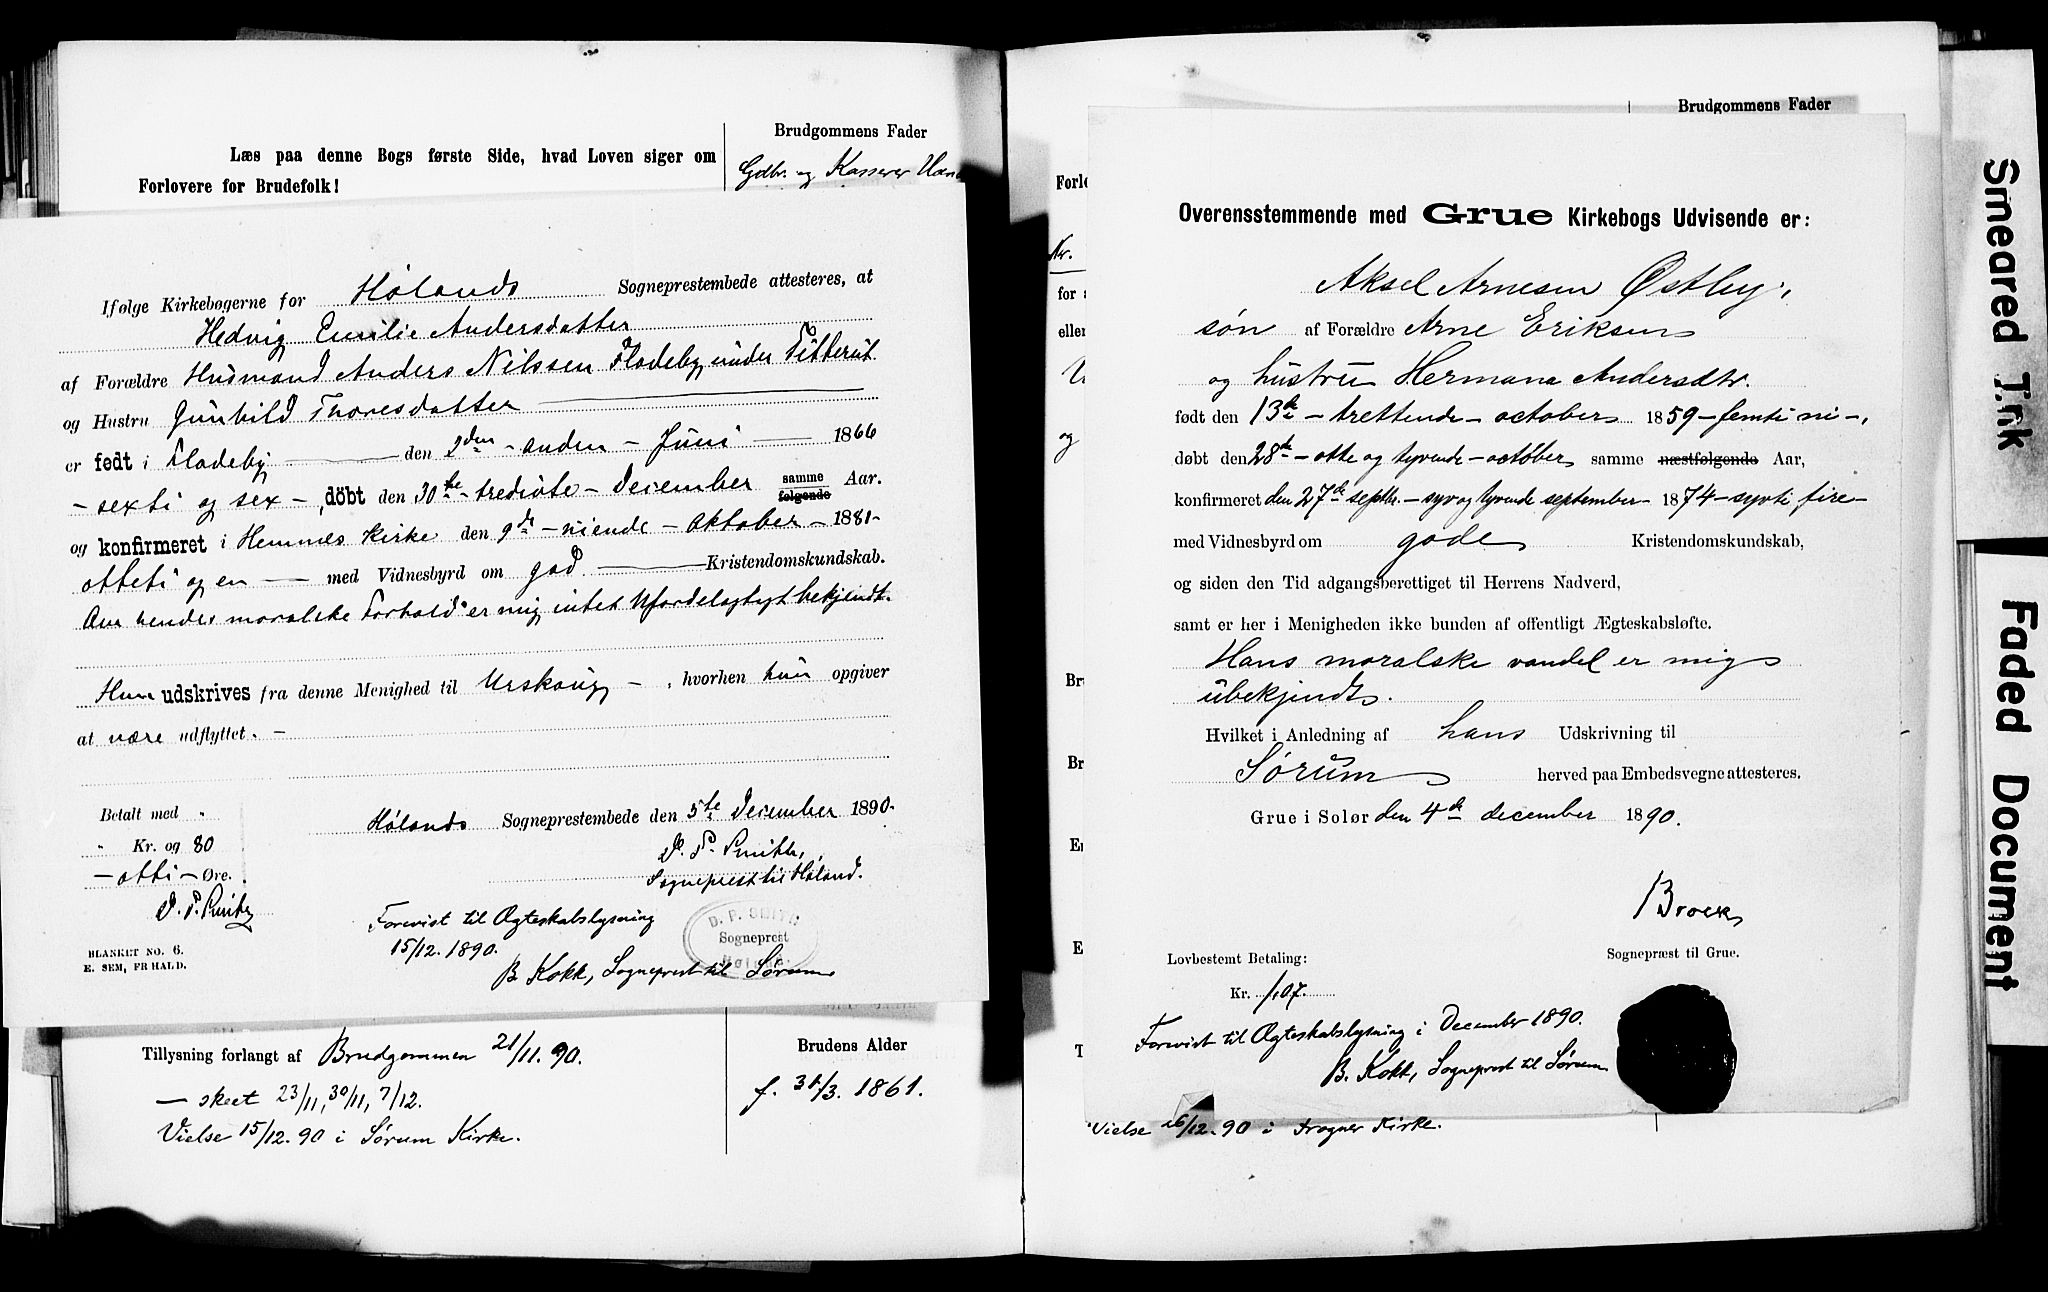 Brudgommens Fader
Læs paa denne Bogs første Side, hvad Loven siger om
Forlovere for Brudefolk!
Gdbr. og Kasserer
Ifølge Kirkebøgerne for Hølands Sogneprestembede attesteres, at
Hedvig Emilie Andersdatter
af Forældre Husmand Anders Nilssen Flodeby under Titterut
og Hustru Gunhild Thoresdatter
er født i Flodeby den 2den - anden - Juni 1866
- sexti og sex -, döbt den 30te - trediote - December samme følgende Aar.
og konfirmeret i Hemnes Kirke den 9de - niende - Oktober - 1881 -
otteti og en - med Vidnesbyrd om god Kristendomskundskab.
Om hendes moralske Forhold er mig intet ufordelagtigt bekjendt.
Hun udskrives fra denne Menighed til Urskoug -, hvorhen hun opgiver
at være udflyttet. -
Betalt med "
" Kr. og 80
- otti - Øre.
D. P. Smith
BLANKET NO. 6.
E. SEM, FR HALD.
Hølands Sogneprestembede den 5te December 1890.
D. P. Smith,
Sogneprest til Høland.
Forevist til Ægteskabslysning
15/12. 1890.
B. Kokk, Sogneprest til Sørum
D. P. SMITH
Sogneprest
Høland.
Tillysning forlangt af Brudgommen 21/11. 90.
- skeet 23/11, 30/11, 7/12.
Vielse 15/12. 90 i Sørum Kirke.
Brudens Alder
f. 31/3. 1861.
Brudgommens Fader
Forlo
Nr.
for
eller
og
Br
Br
E
E
T
Overensstemmende med Grue Kirkebogs Udvisende er:
Aksel Arnesen Østby,
søn af Forældre Arne Eriksen
og hustru Hermana Andersdtr.
født den 13de - trettende - october 1859 - femti ni -,
døbt den 28de - otte og tyvende - october samme næstfølgende Aar,
konfirmeret den 27de septbr. - syv og tyvende september - 1874 - syvti fire -
med Vidnesbyrd om gode Kristendomskundskab,
og siden den Tid adgangsberettiget til Herrens Nadverd,
samt er her i Menigheden ikke bunden af offentligt Ægteskabsløfte.
Hans moralske vandel er mig
ubekjendt.
Hvilket i Anledning af hans Udskrivning til
Sørum herved paa Embedsvegne attesteres.
Grue i Solør den 4de december 1890.
Brock
Sognepræst til Grue.
Lovbestemt Betaling:
Kr. 1,07.
Forevist til Ægteskabslysning i December 1890.
B. Kokk, Sogneprest til Sørum
Vielse 26/12. 90 i Frogner Kirke.
Smeared Trk
Faded Document